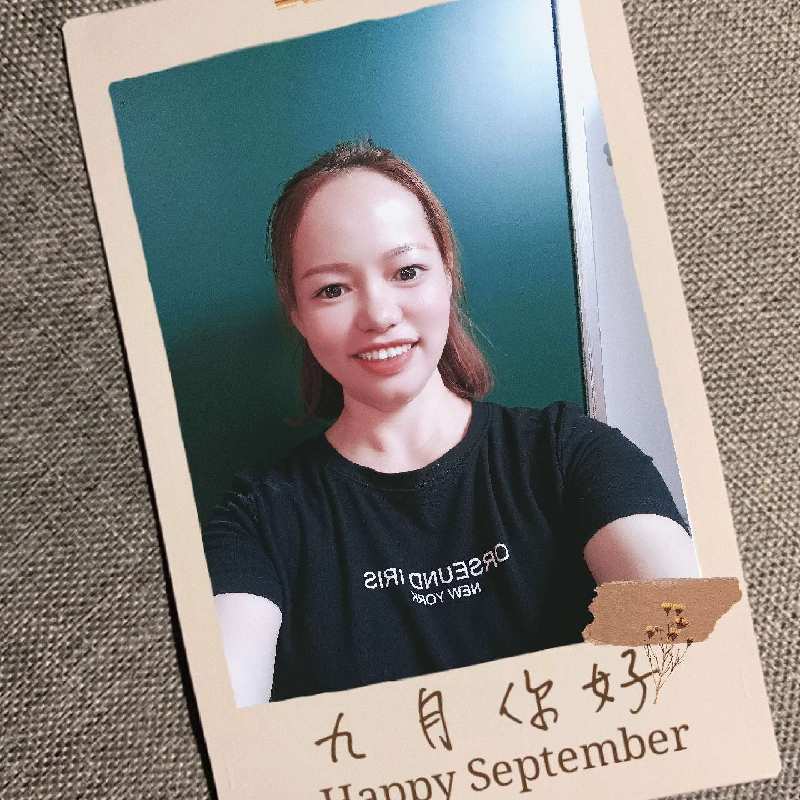 ORSEUND IRIS
NEW YORK
九月你好
Happy September